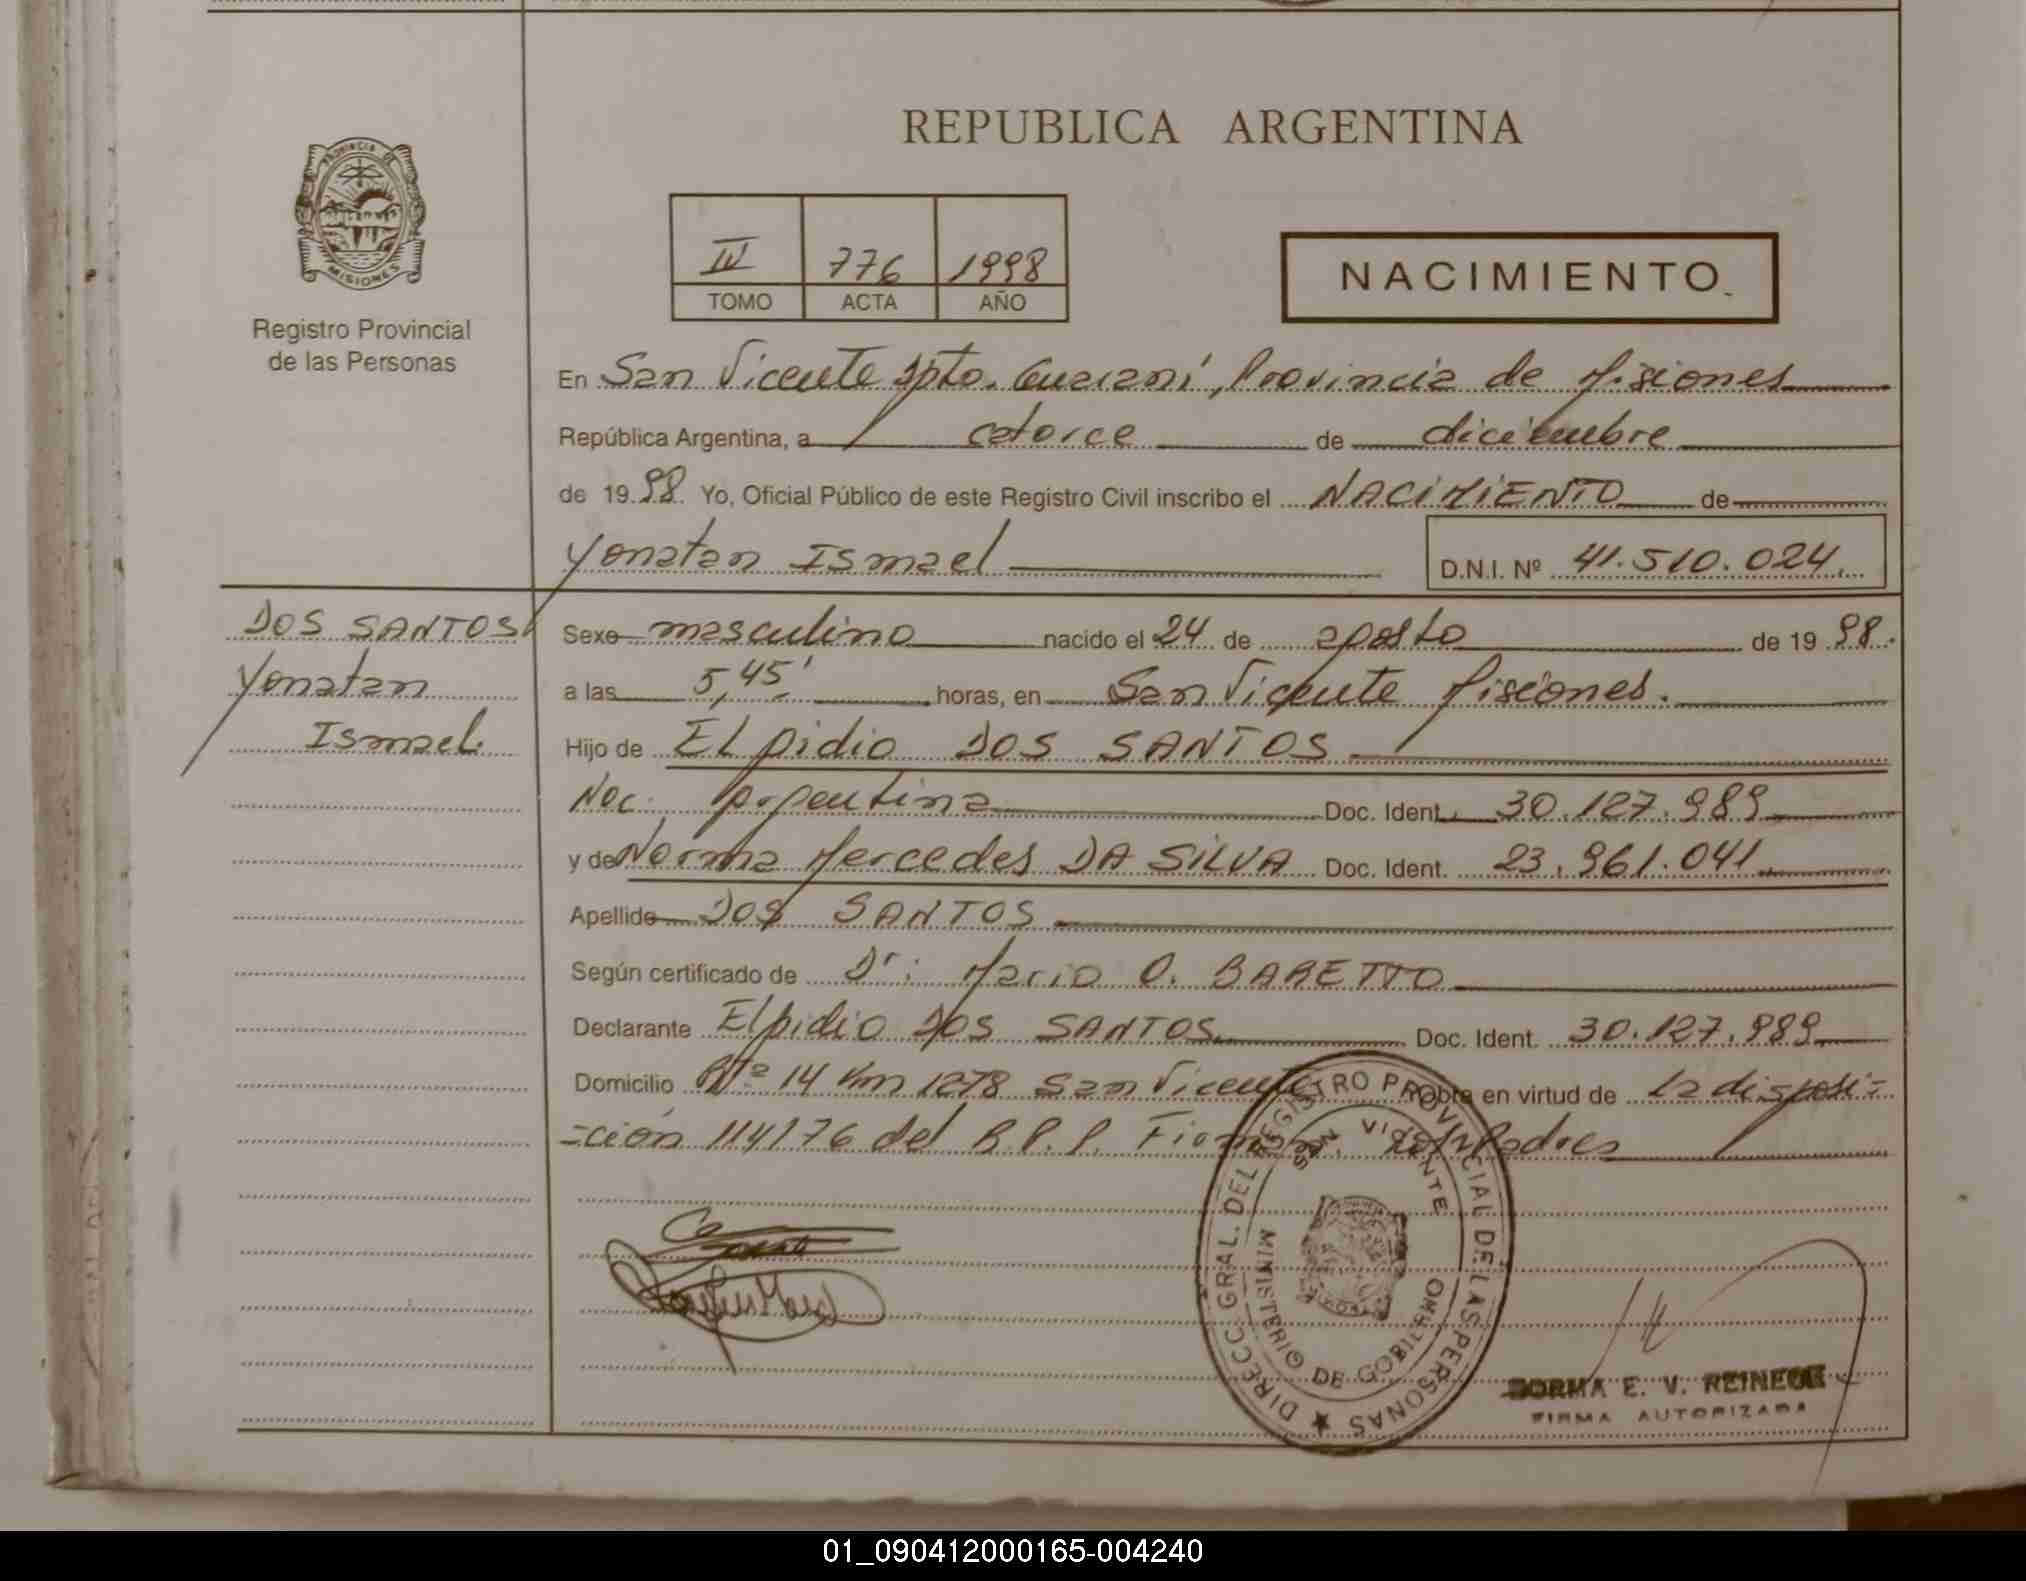 REPUBLICA ARGENTINA
PROVINCIA DE MISIONES
Registro Provincial
de las Personas
IV 776 1998
TOMO ACTA AÑO
NACIMIENTO
En San Vicente Dpto. Guaraní, Provincia de Misiones
República Argentina, a catorce de diciembre
de 1998. Yo, Oficial Público de este Registro Civil inscribo el NACIMIENTO de
Yonatan Ismael D.N.I. Nº 41.510.024.
DOS SANTOS
Yonatan
Ismael.
Sexo masculino nacido el 24 de agosto de 1998.
a las 5,45' horas, en San Vicente Misiones.
Hijo de ELpidio DOS SANTOS
Nac. Argentina Doc. Ident. 30.127.989
y de Norma Mercedes DA SILVA Doc. Ident. 23.961.041
Apellido DOS SANTOS
Según certificado de Dr: Mario O. BARETTO
Declarante Elpidio DOS SANTOS Doc. Ident. 30.127.989
Domicilio Rta 14 Km 1278 San Vicente Obra en virtud de la disposi=
=ción 114/76 del R.P.P. Firman Padres
DIRECC. GRAL. DEL REGISTRO PROVINCIAL DE LAS PERSONAS
SAN VICENTE
MINISTERIO DE GOBIERNO
NORMA E. V. REINECK
FIRMA AUTORIZADA
01_090412000165-004240